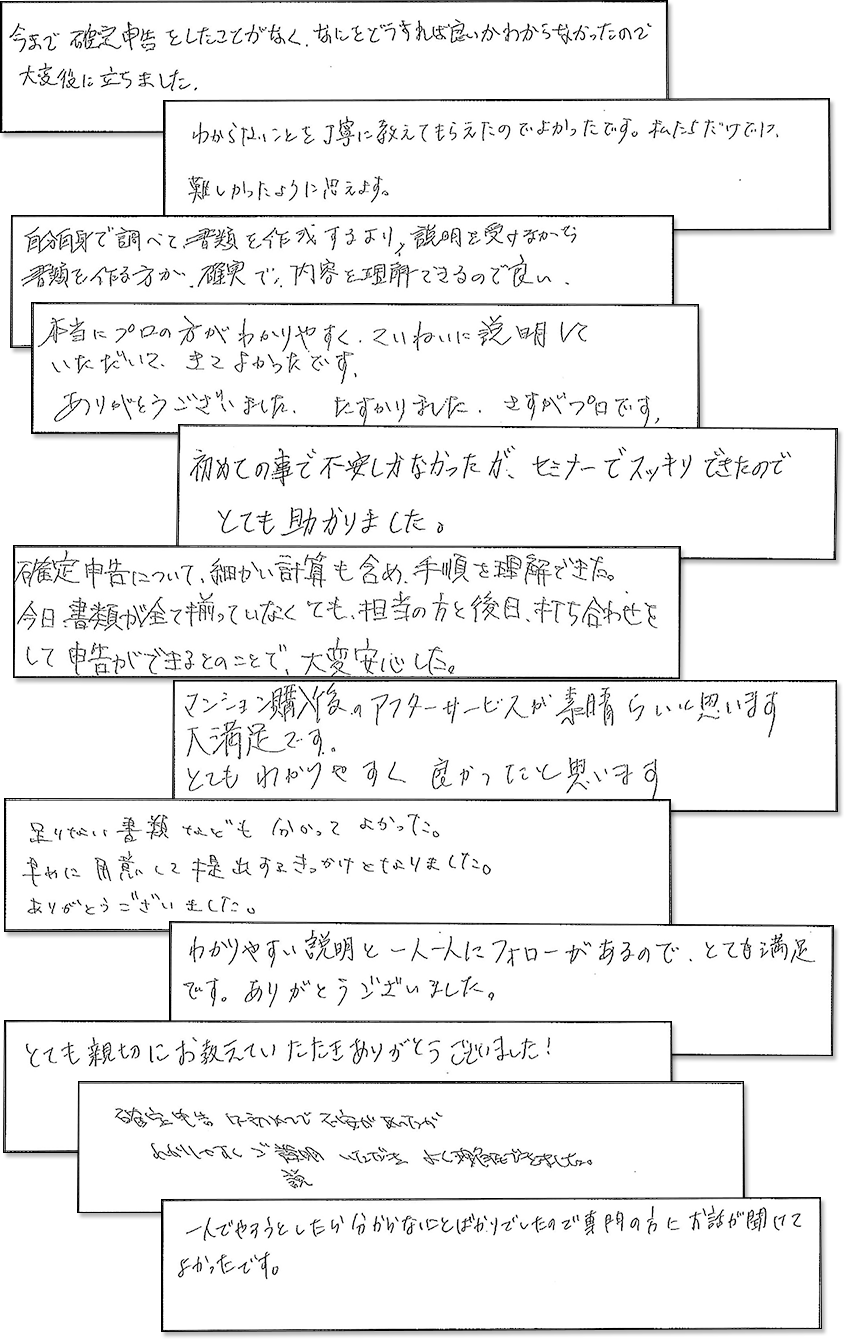 今まで確定申告をしたことがなく、なにをどうすれば良いかわからなかったので
大変役に立ちました。
わからないことを丁寧に教えてもらえたのでよかったです。私たちだけでは、
難しかったように思えます。
自分自身で調べて書類を作成するより、説明を受けながら
書類を作る方が、確実で、内容を理解できるので良い、
本当にプロの方がわかりやすく、ていねいに説明して
いただいて、きてよかったです、
ありがとうございました、たすかりました、さすがプロです、
初めての事で不安しかなかったが、セミナーでスッキリできたので
とても助かりました。
確定申告について、細かい計算も含め、手順を理解できた。
今日、書類が全て揃っていなくても、担当の方と後日、打ち合わせを
して申告ができるとのことで、大変安心した。
マンション購入後のアフターサービスが素晴らいと思います
大満足です。
とてもわかりやすく良かったと思います
足りない書類なども分かってよかった。
早めに用意して提出するきっかけとなりました。
ありがとうございました。
わかりやすい説明と一人一人にフォローがあるので、とても満足
です。ありがとうございました。
とても親切にお教えていただきありがとうございました！
確定申告は初めてで不安があったが
わかりやすくご説明いただき よく理解ができました。
説
一人でやろうとしたら分からないことばかりでしたので専門の方にお話が聞けて
よかったです。